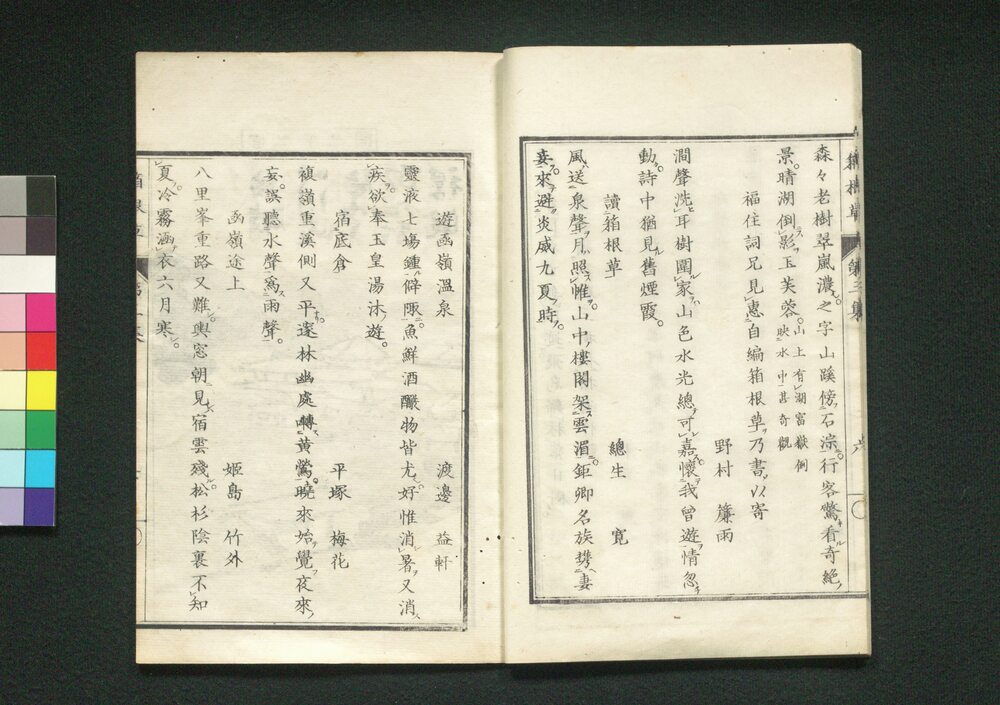 森々老樹翠嵐濃之字山蹊傍石淙行客驚看奇絶
景晴湖倒影玉芙蓉山上有湖富嶽倒映水中甚奇觀
福住詞兄見惠自編箱根草乃書以寄
野村 簾雨
澗聲洗耳樹圍家山色水光總可嘉懷我曾遊情忽
動詩中猶見舊煙霞
讀箱根草 總生 寛
風送泉聲月照帷山中樓閣架雲湄鉅卿名族携妻
妾來避炎威九夏時
遊函嶺溫泉 渡邊 益軒
靈液七塲鍾僻陬魚鮮酒釅物皆尤好惟消暑又消
疾欲奉玉皇湯沐遊
宿底倉 平塚 梅花
複嶺重溪側又平邃林幽處囀黃鶯曉來始覺夜來
妄誤聽水聲爲雨聲
函嶺途上 姬島 竹外
八里峯重路又難輿窓朝見宿雲殘松杉陰裏不知
夏冷霧涵衣六月寒